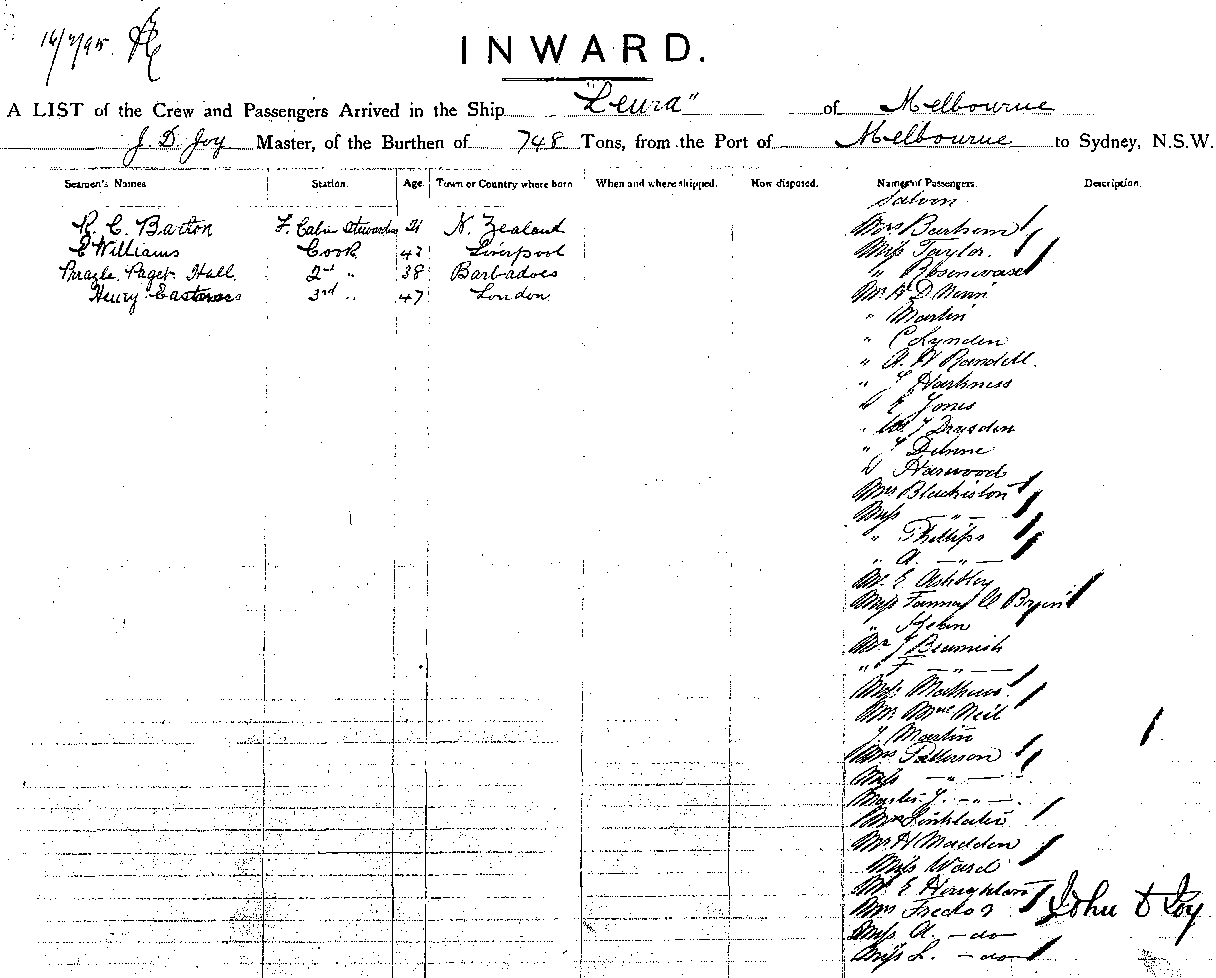 16/7/95
INWARD.
A LIST of the Crew and Passengers Arrived in the Ship "Leura" of Melbourne
J. D. Joy Master, of the Burthen of 748 Tons, from the Port of Melbourne to Sydney, N.S.W.
Seamen's Names Station. Age. Town or Country where born When and where shipped. How disposed. Names of Passengers. Description.
Saloon
R. C. Barton F. Cabin Steward 21 N. Zealand Mrs
E Williams Cook 42 Liverpool Miss Taylor.
Paget Hall 2nd " 38 Barbadoes "
Henry 3rd " 47 London Mr D
" Martin
" C Lynden
" A. W Randell.
" Harkness
" E Jones
" Drysden
" Dunne
" Harwood
Mrs Blackiston
Miss — " —
" Phillips
" A. — " —
Mr. E. Ashbley
Miss Fanny
" Helen
Mr J Beamish
" F — " —
Mathews
Mr. Mac Neil
J. Martin
Mrs Patterson
Miss — " —
Master J. — " —
Mrs
Mr H Madden
Miss Ward
Mr. E Houghton
Mrs John D Joy
Miss A. — do —
Miss L. — do —